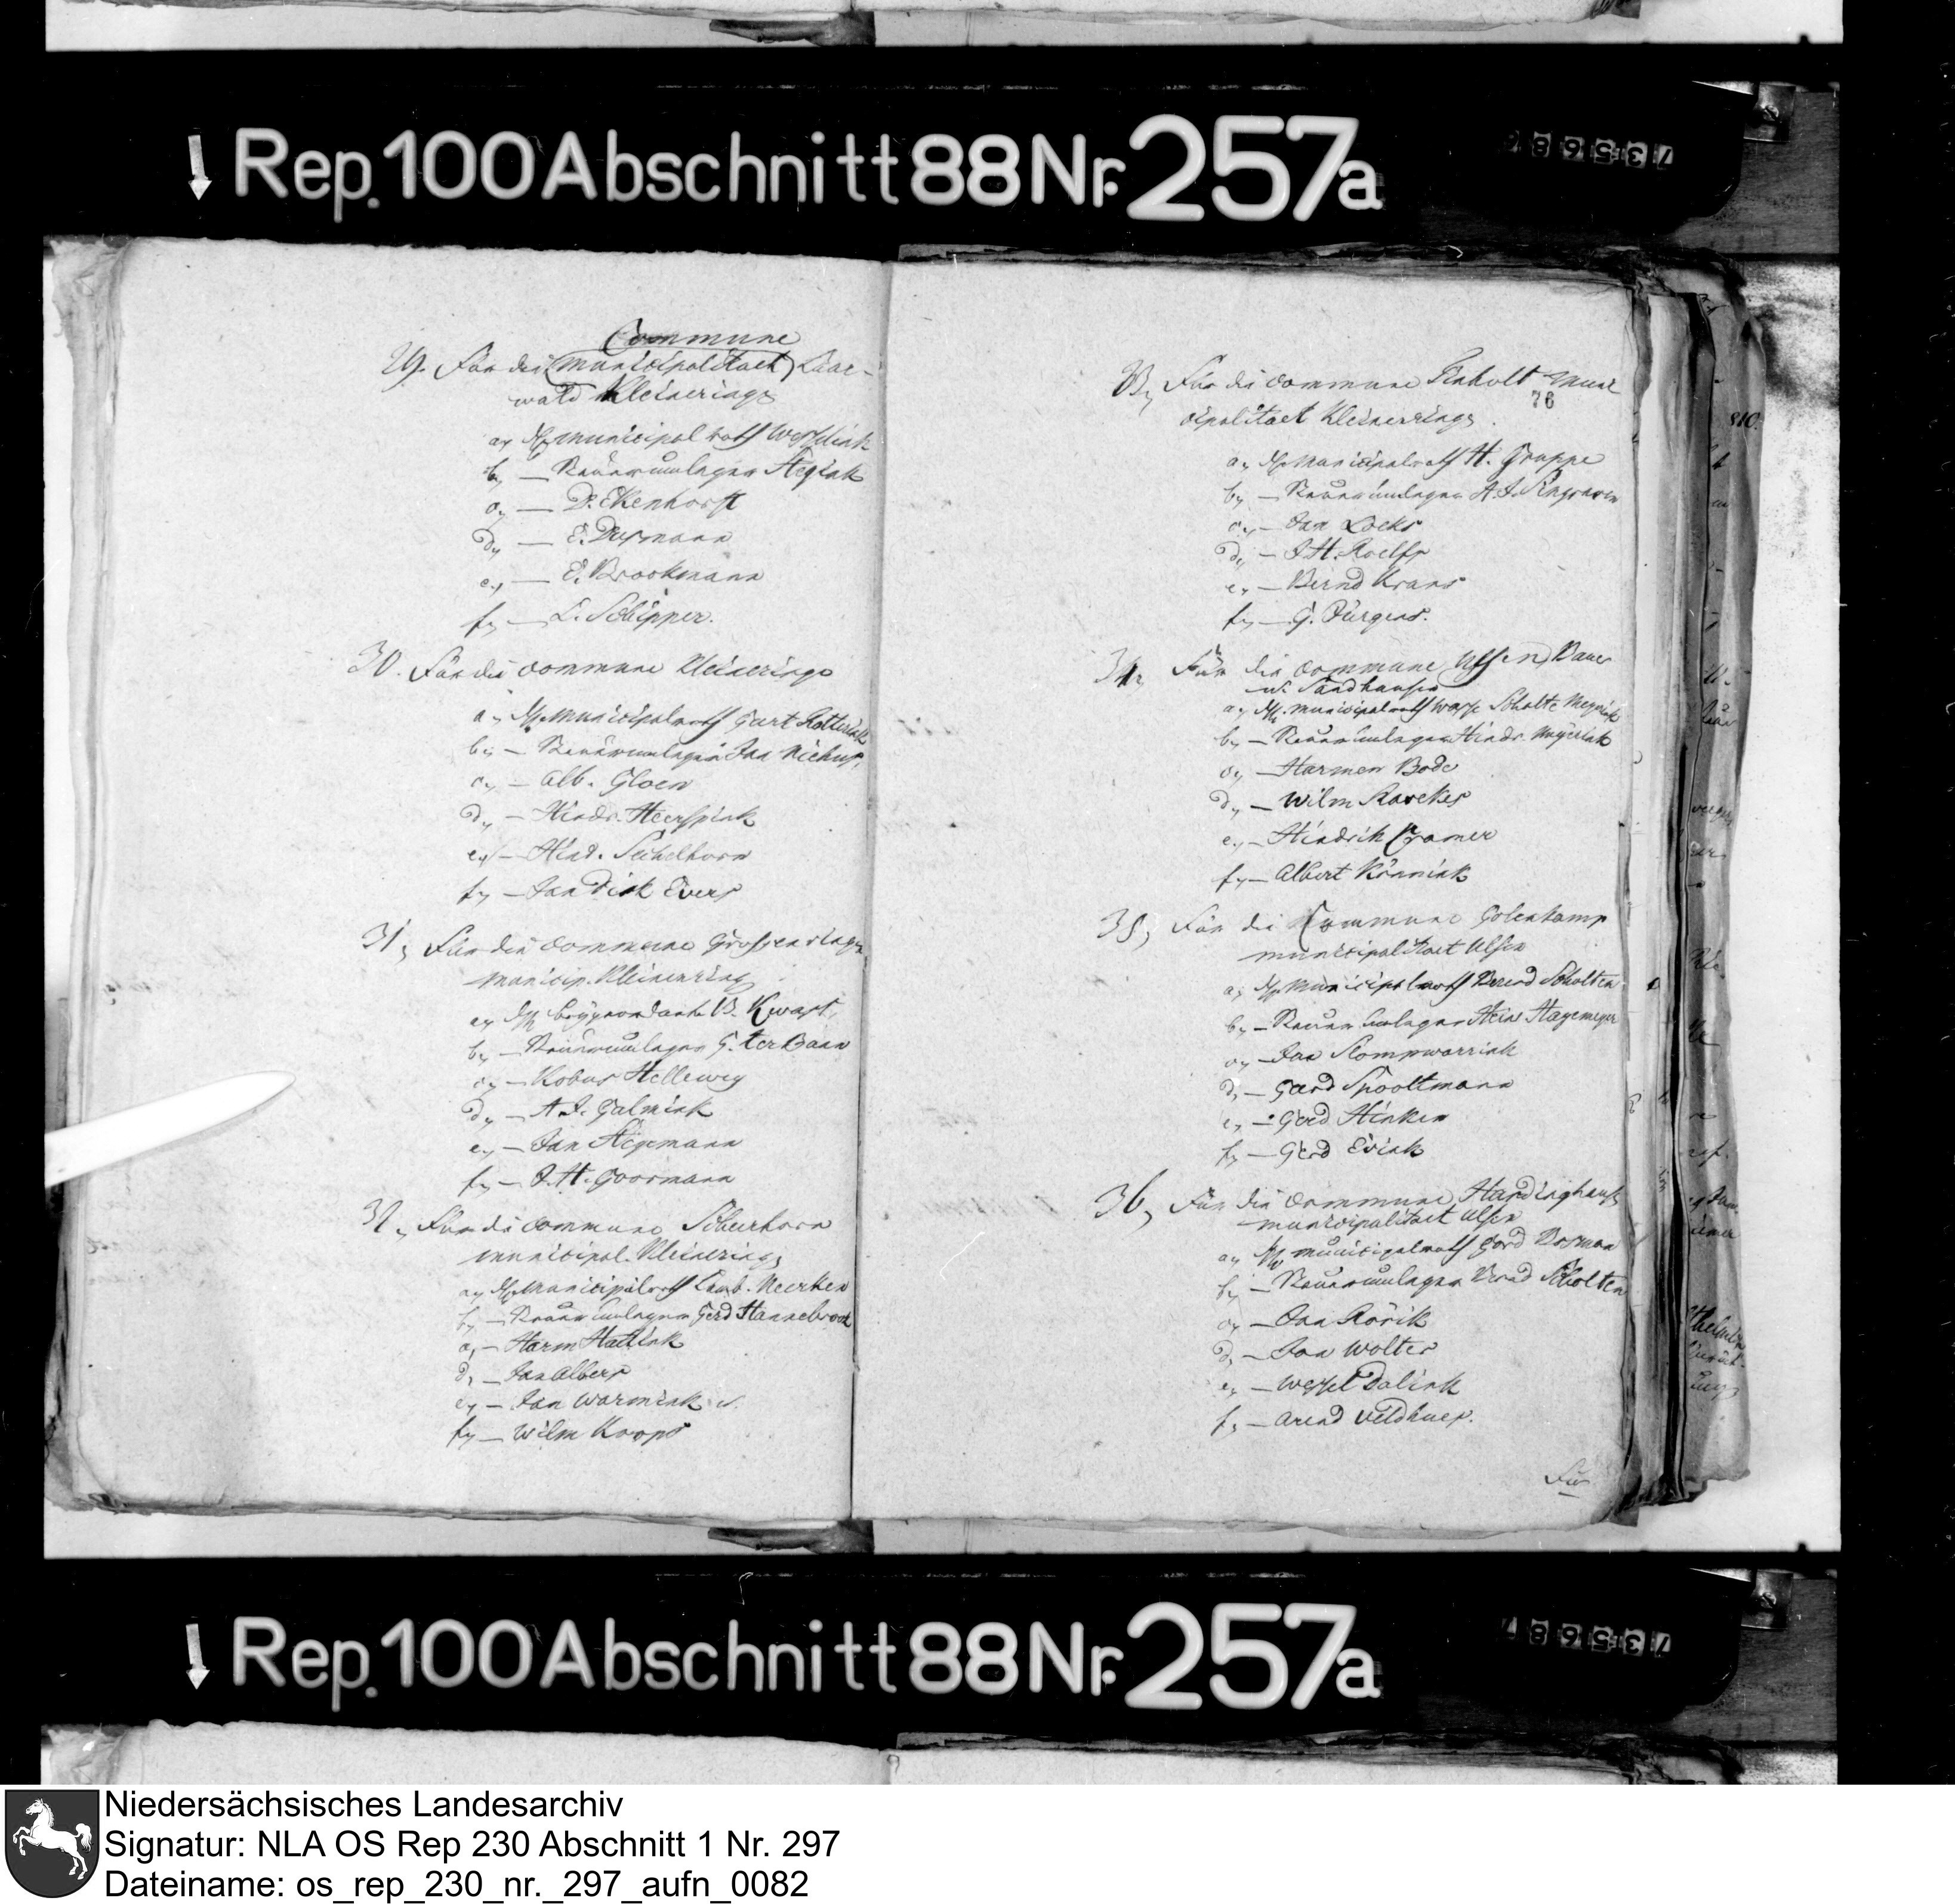 Rep. 100 Abschnitt 88 Nr. 257a
735686
Commune
29. Für die (municipalitaet) Laar-
wald Kleinerings
a, H. municipalrath
b, — Steüerumleger
c, — D. Ekenhorst
d, — E.
e, — E. Brookmann
f, — L. Schipper.
30. Für die commune Kleinerings
a, H. Municipalrath Gert
b, — Steüerumleger Jan Niehus,
c, — Alb. Gloen
d, — Hindr. Heerspink
e, — Hind. Seckelhorn
f, — Jan Dirk Evers
31, Für die commune Grossenringe
municip. Kleinering
a, H. B. Kwast,
b, — Steüerumleger G. ter Baan
c, — Kobus Helleweg
d, — A. J. Galmink
e, — Jan Stegemann
f, — J. H. Goormann
32, Für die commune Scheerhorn
municipal. Kleinerings
a, H. Municipalrath Lamb. Neerken
b, — Steüerumleger Gerd
c, — Harm Hattink
d, — Jan Albers
e, — Jan Warmink
f, — Wilm Koops
33, Für die commune Tinholt Muni
78
cipalitaet Kleinerrings.
a, H. Municipalrath H. Gruppe
b, — Steüerumleger A. J.
c, — Jan Locks
d, — J. H. Roelfs
e, — Bernd Krans
f, — G. Jürgens.
34, Für die commune Ulsen) Bauer
u. Sandhausen
a, H. municipalrath Scholte
b, — Steüerumleger Hindr.
c, — Harmen Bode
d, — Wilm
e, — Hindrik Cramer
f, — Albert Könnink
35, Für die Commune Golenkamp
municipalitaet Ulsen
a, H. Municipalrath Berend Scholten
b, — Steüerumleger Hein Hagemeyer
c, — Jan
d, — Gerd Spooltmann
e, — Gerd Hinken
f, — Gerd Evink
36, Für die commune Hardinghausen
municipalitaet Ulsen
a, H. municipalrath Gerd Bosman
b, — Steüerumleger Berend Scholten
c, — Jan Rörik
d, — Jan Wolter
e, — Wessel Dalink
f, — Arend Veldhues.
Für
810.
Rep. 100 Abschnitt 88 Nr. 257a
735687
Niedersächsisches Landesarchiv
Signatur: NLA OS Rep 230 Abschnitt 1 Nr. 297
Dateiname: os_rep_230_nr._297_aufn_0082